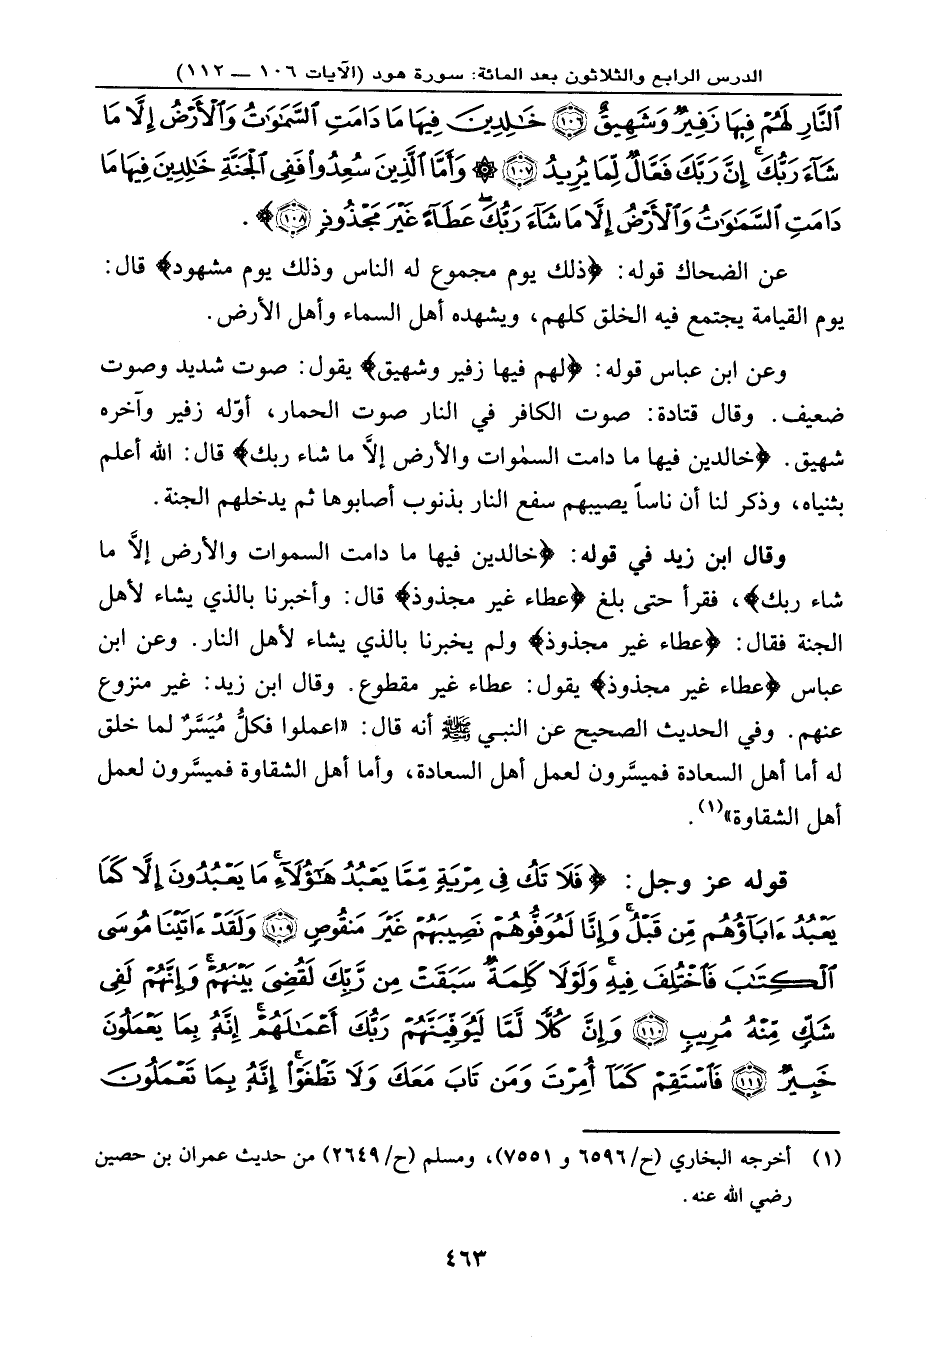 الدرس الرابع والثلاثون بعد المائة: سورة هود (الآيات ١٠٦ ــ ١١٢)
ٱلنَّارِ لَهُمْ فِيهَا زَفِيرٌ وَشَهِيقٌ ۝١٠٦ خَٰلِدِينَ فِيهَا مَا دَامَتِ ٱلسَّمَٰوَٰتُ وَٱلْأَرْضُ إِلَّا مَا
شَآءَ رَبُّكَ ۚ إِنَّ رَبَّكَ فَعَّالٌ لِّمَا يُرِيدُ ۝١٠٧ ۞ وَأَمَّا ٱلَّذِينَ سُعِدُوا۟ فَفِى ٱلْجَنَّةِ خَٰلِدِينَ فِيهَا مَا
دَامَتِ ٱلسَّمَٰوَٰتُ وَٱلْأَرْضُ إِلَّا مَا شَآءَ رَبُّكَ ۖ عَطَآءً غَيْرَ مَجْذُوذٍ ۝١٠٨﴾ .
عن الضحاك قوله: ﴿ذلك يوم مجموع له الناس وذلك يوم مشهود﴾ قال:
يوم القيامة يجتمع فيه الخلق كلهم، ويشهده أهل السماء وأهل الأرض.
وعن ابن عباس قوله: ﴿لهم فيها زفير وشهيق﴾ يقول: صوت شديد وصوت
ضعيف. وقال قتادة: صوت الكافر في النار صوت الحمار، أوّله زفير وآخره
شهيق. ﴿خالدين فيها ما دامت السمٰوات والأرض إلَّا ما شاء ربك﴾ قال: الله أعلم
بثنياه، وذكر لنا أن ناساً يصيبهم سفع النار بذنوب أصابوها ثم يدخلهم الجنة.
وقال ابن زيد في قوله: ﴿خالدين فيها ما دامت السموات والأرض إلَّا ما
شاء ربك﴾، فقرأ حتى بلغ ﴿عطاء غير مجذوذ﴾ قال: وأخبرنا بالذي يشاء لأهل
الجنة فقال: ﴿عطاء غير مجذوذ﴾ ولم يخبرنا بالذي يشاء لأهل النار. وعن ابن
عباس ﴿عطاء غير مجذوذ﴾ يقول: عطاء غير مقطوع. وقال ابن زيد: غير منزوع
عنهم. وفي الحديث الصحيح عن النبي ﷺ أنه قال: «اعملوا فكلُّ مُيَسَّرٌ لما خلق
له أما أهل السعادة فميسَّرون لعمل أهل السعادة، وأما أهل الشقاوة فميسَّرون لعمل
أهل الشقاوة»(١).
قوله عز وجل: ﴿فَلَا تَكُ فِى مِرْيَةٍ مِّمَّا يَعْبُدُ هَٰٓؤُلَآءِ ۚ مَا يَعْبُدُونَ إِلَّا كَمَا
يَعْبُدُ ءَابَآؤُهُم مِّن قَبْلُ ۚ وَإِنَّا لَمُوَفُّوهُمْ نَصِيبَهُمْ غَيْرَ مَنقُوصٍ ۝١٠٩ وَلَقَدْ ءَاتَيْنَا مُوسَى
ٱلْكِتَٰبَ فَٱخْتُلِفَ فِيهِ ۚ وَلَوْلَا كَلِمَةٌ سَبَقَتْ مِن رَّبِّكَ لَقُضِىَ بَيْنَهُمْ ۚ وَإِنَّهُمْ لَفِى
شَكٍّ مِّنْهُ مُرِيبٍ ۝١١٠ وَإِنَّ كُلًّا لَّمَّا لَيُوَفِّيَنَّهُمْ رَبُّكَ أَعْمَٰلَهُمْ ۚ إِنَّهُۥ بِمَا يَعْمَلُونَ
خَبِيرٌ ۝١١١ فَٱسْتَقِمْ كَمَآ أُمِرْتَ وَمَن تَابَ مَعَكَ وَلَا تَطْغَوْا۟ ۚ إِنَّهُۥ بِمَا تَعْمَلُونَ
(١) أخرجه البخاري (ح/٦٥٩٦ و ٧٥٥١)، ومسلم (ح/٢٦٤٩) من حديث عمران بن حصين
رضي الله عنه.
٤٦٣